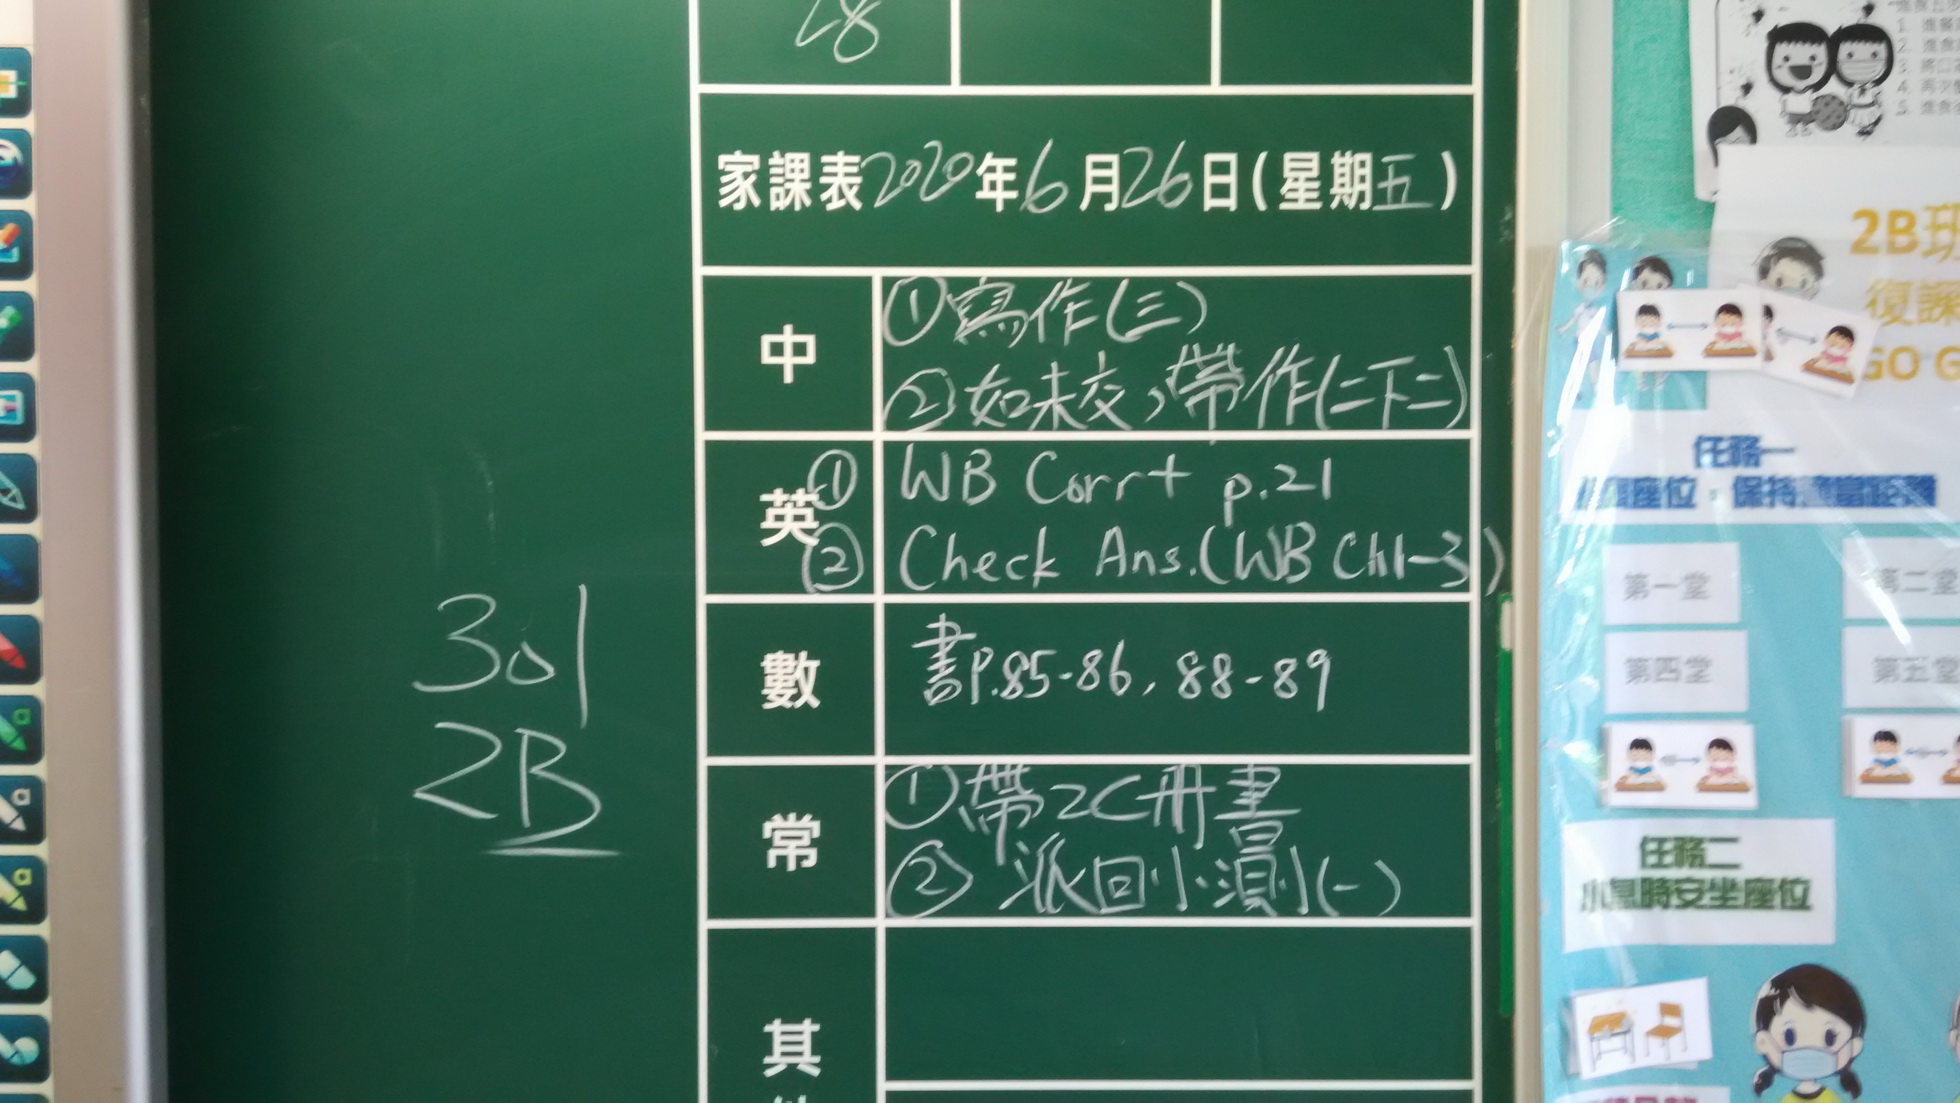 28
家課表2020年6月26日(星期五)
中
①寫作(三)
②如未交,帶作(二下二)
英
① WB Corrt p.21
② Check Ans.(WB Ch1-3)
數
書P.85-86, 88-89
常
①帶2C冊書
② 派回小測(一)
其
301
2B
1.
2.
3.
4.
5.
2B班
復課
GO G
任務一
座位,保持適當距離
第一堂
第二堂
第四堂
第五堂
任務二
小息時安坐座位